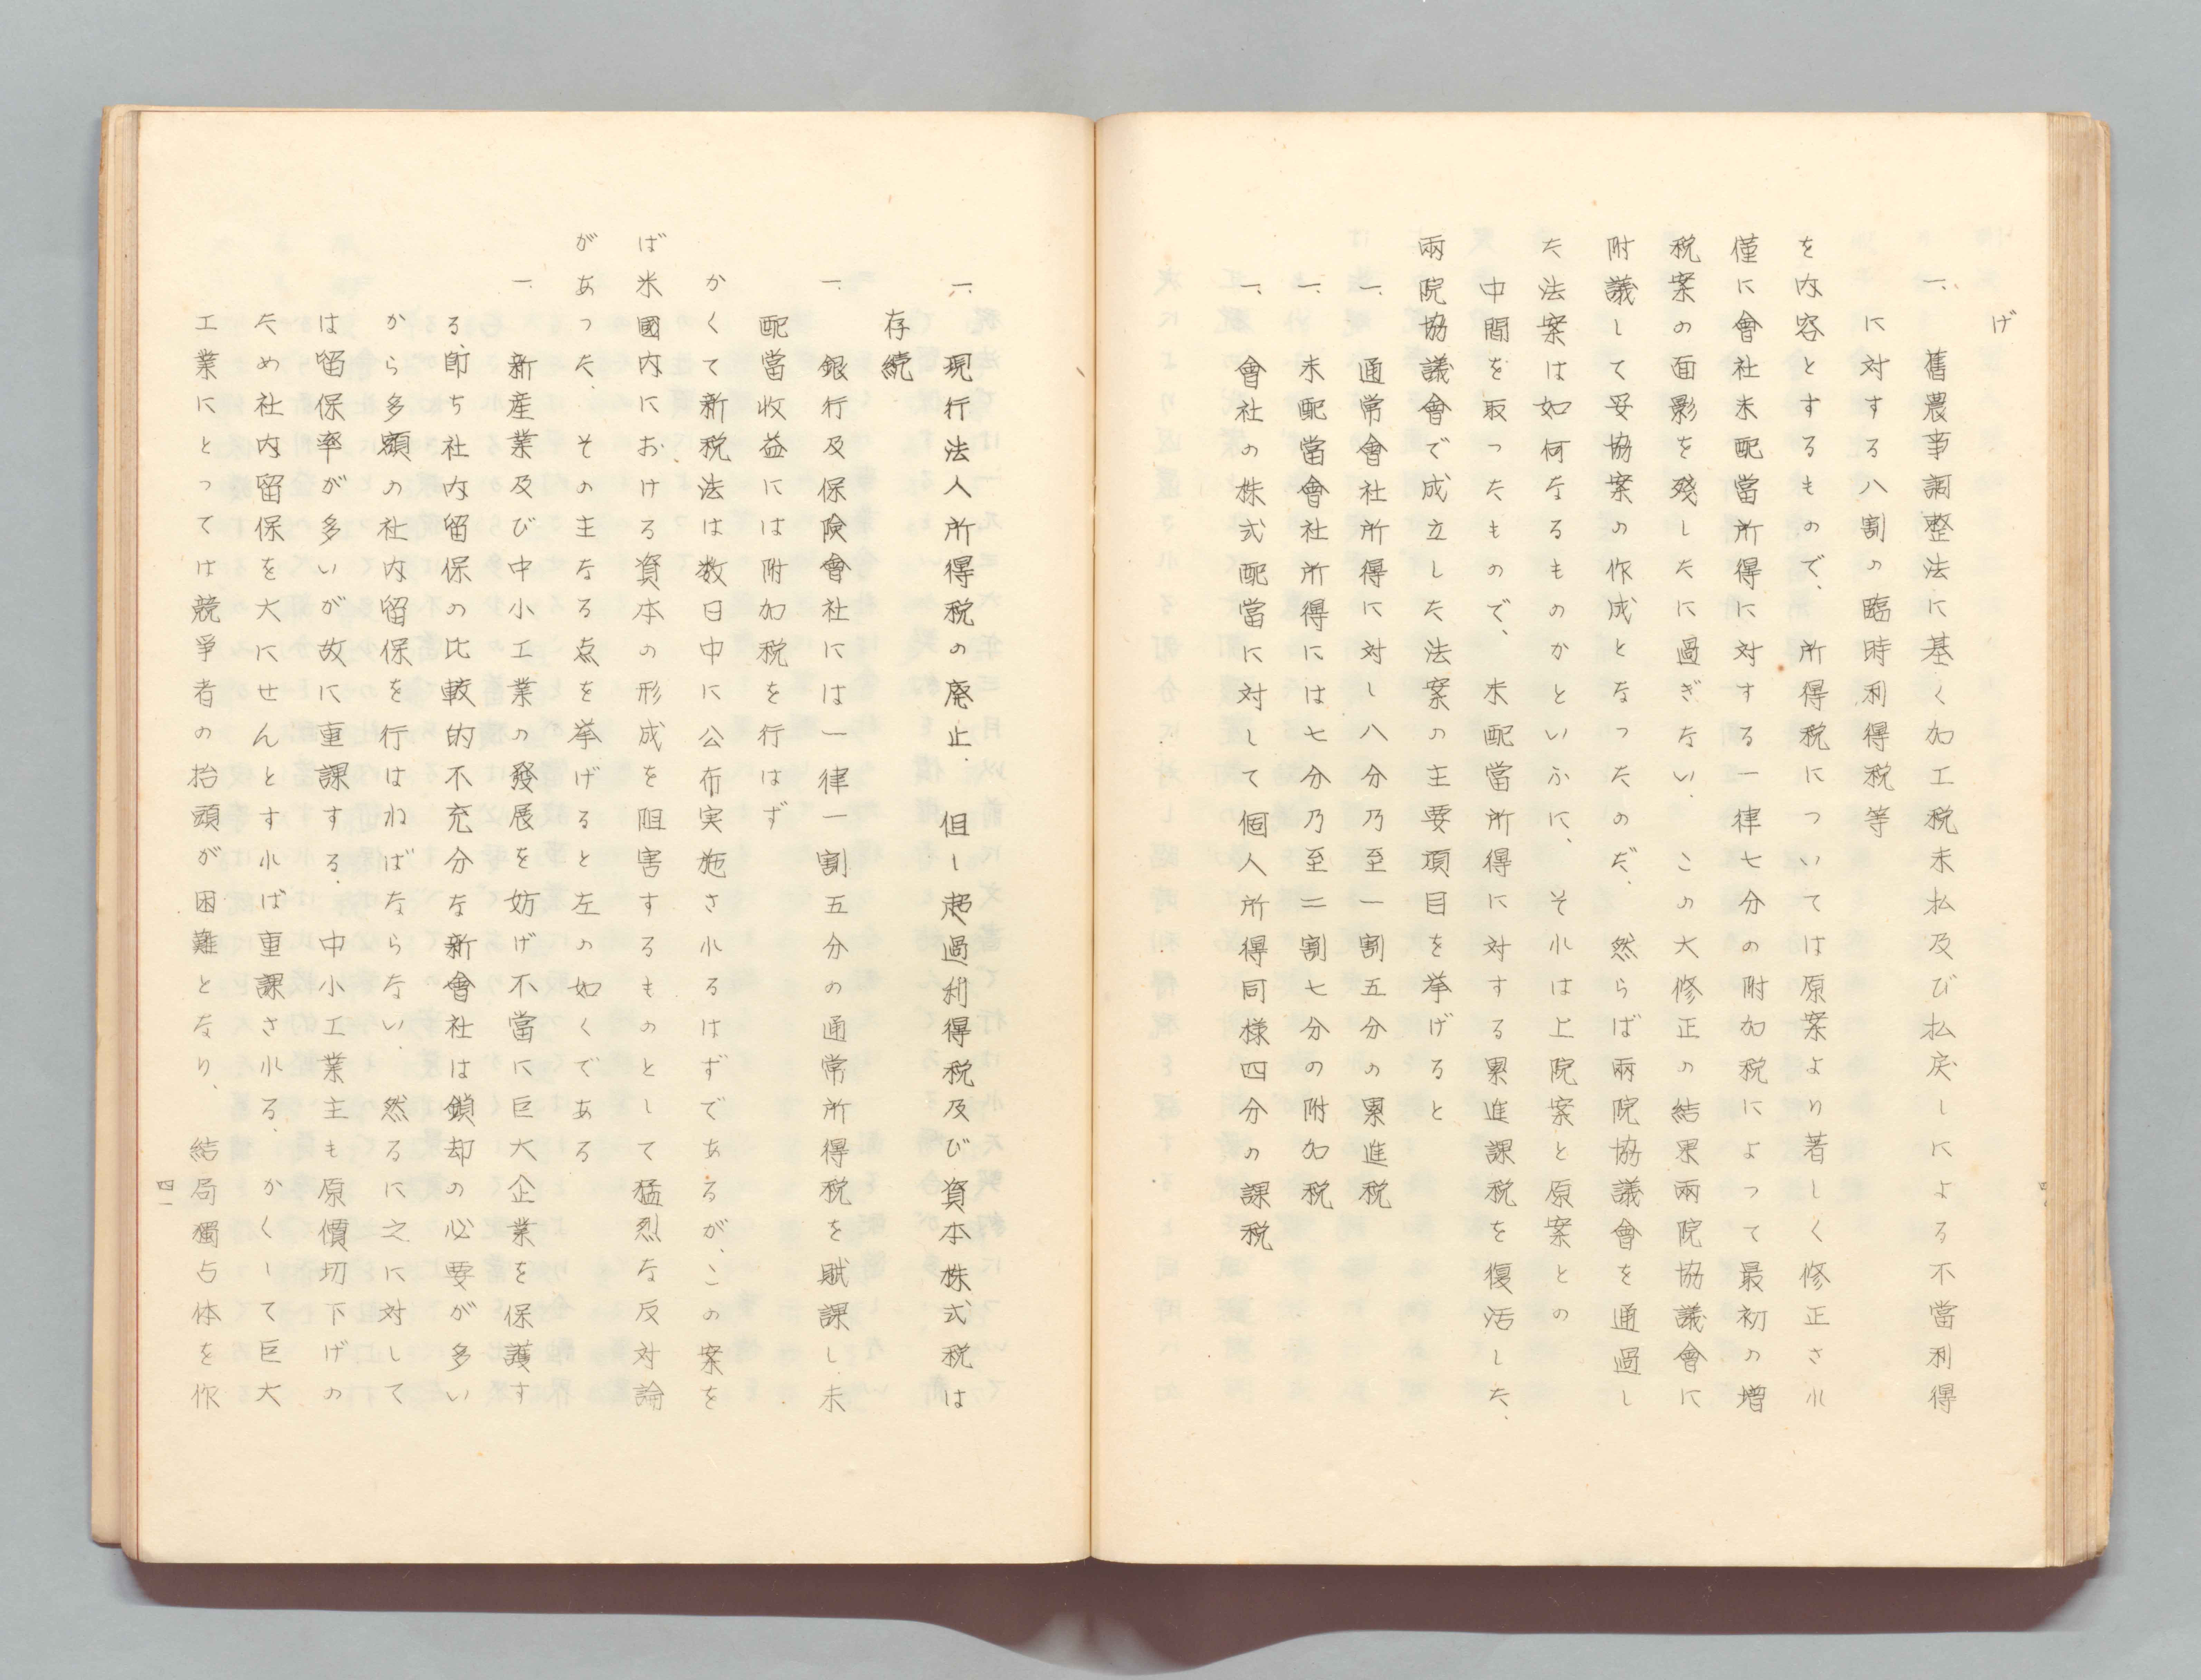 げ
一、舊農事調整法に基く加工税未払及び払戻しによる不當利得
に対する八割の臨時利得税等
を内容とするもので、所得税については原案より著しく修正され
僅に會社未配當所得に対する一律七分の附加税によって最初の増
税案の面影を残したに過ぎない.この大修正の結果兩院協議會に
附議して妥協案の作成となったのだ.然らば兩院協議會を通過し
た法案は如何なるものかといふに、それは上院案と原案との
中間を取ったもので、未配當所得に対する累進課税を復活した、
兩院協議會で成立した法案の主要項目を挙げると
一、通常會社所得に対し八分乃至一割五分の累進税
一、未配當會社所得には七分乃至二割七分の附加税
一、會社の株式配當に対して個人所得同様四分の課税
一、現行法人所得税の廃止.但し超過利得税及び資本株式税は
存続.
一、銀行及保険會社には一律一割五分の通常所得税を賦課し.未
配當收益には附加税を行はず
かくて新税法は数日中に公布実施されるはずであるが、この案を
ば米國内における資本の形成を阻害するものとして猛烈な反対論
があった.その主なる点を挙げると左の如くである
一.新産業及び中小工業の發展を妨げ不當に巨大企業を保護す
る、即ち社内留保の比較的不充分な新會社は鎖却の必要が多い
から多額の社内留保を行はねばならない.然るに之に対して
は留保率が多いが故に重課する.中小工業主も原價切下げの
ため社内留保を大にせんとすれば重課される.かくして巨大
工業にとっては競爭者の抬頭が困難となり、結局獨占体を作
四一